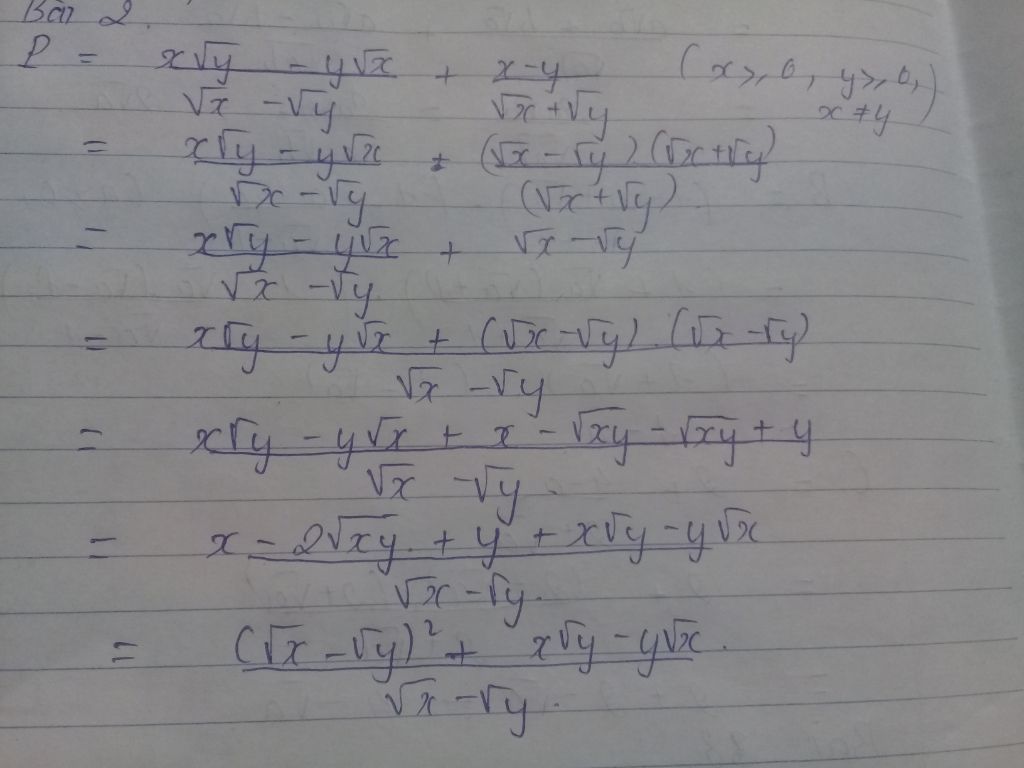 Bài 2.
P = (x√y - y√x)/(√x - √y) + (x-y)/(√x+√y) (x ≥ 0, y ≥ 0, x ≠ y)
= (x√y - y√x)/(√x - √y) + (√x - √y).(√x+√y)/(√x+√y)
= (x√y - y√x)/(√x - √y) + √x - √y
= (x√y - y√x + (√x-√y).(√x-√y))/(√x - √y)
= (x√y - y√x + x - √xy - √xy + y)/(√x - √y).
= (x - 2√xy + y + x√y - y√x)/(√x - √y).
= ((√x - √y)² + x√y - y√x)/(√x - √y).